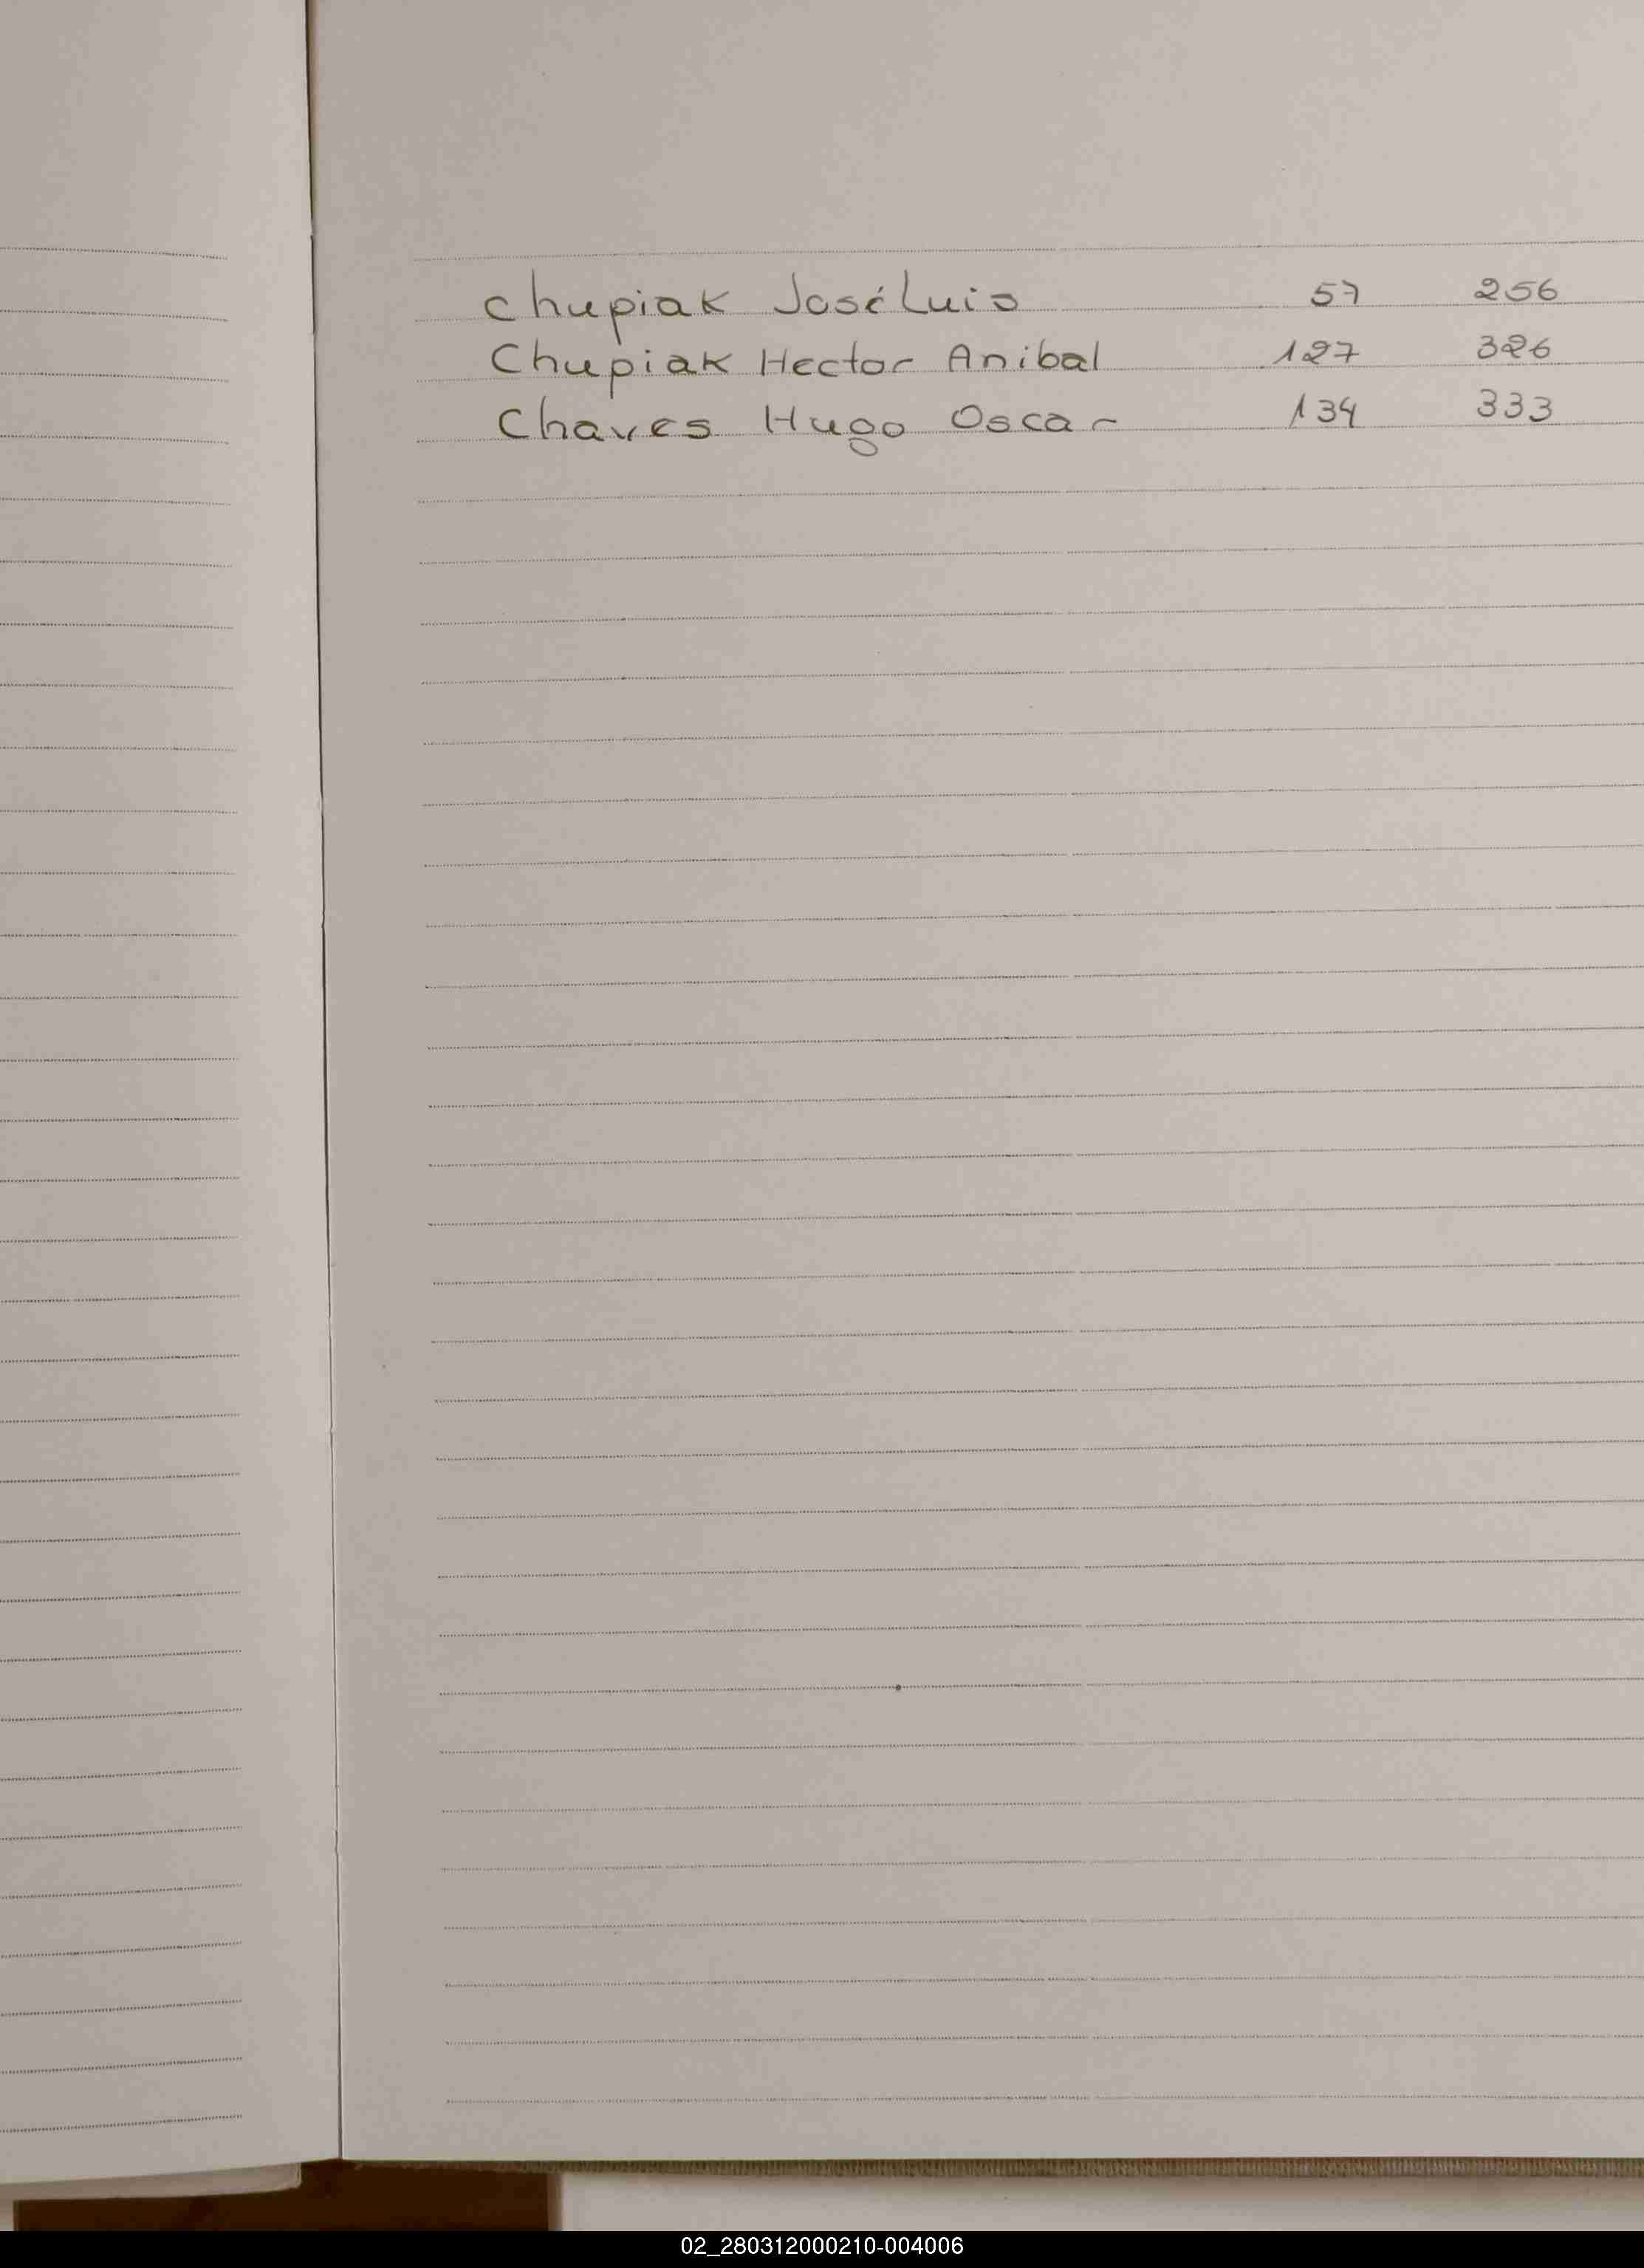 Chupiak José Luis 57 256
Chupiak Hector Anibal 127 326
Chaves Hugo Oscar 134 333
02_280312000210-004006